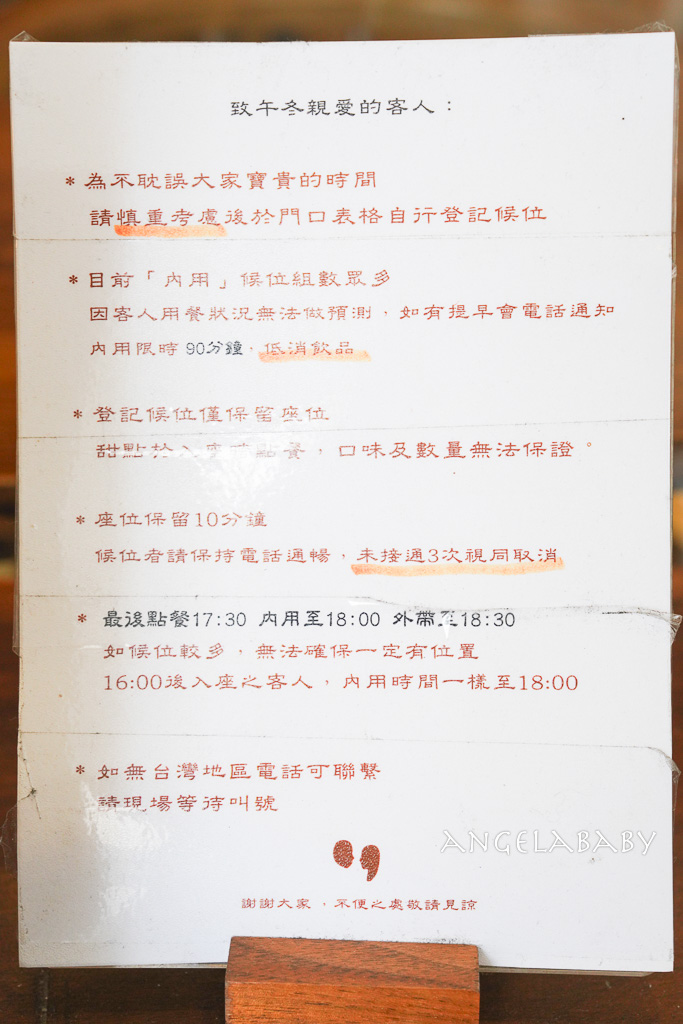 致午冬親愛的客人：
* 為不耽誤大家寶貴的時間
請慎重考慮後於門口表格自行登記候位
* 目前「內用」候位組數眾多
因客人用餐狀況無法做預測，如有提早會電話通知
內用限時 90分鐘，低消飲品
* 登記候位僅保留座位
甜點於入座時點餐，口味及數量無法保證。
* 座位保留10分鐘
候位者請保持電話通暢，未接通3次視同取消
* 最後點餐17:30 內用至18:00 外帶至18:30
如候位較多，無法確保一定有位置
16:00後入座之客人，內用時間一樣至18:00
* 如無台灣地區電話可聯繫
請現場等待叫號
ANGELABABY
謝謝大家，不便之處敬請見諒